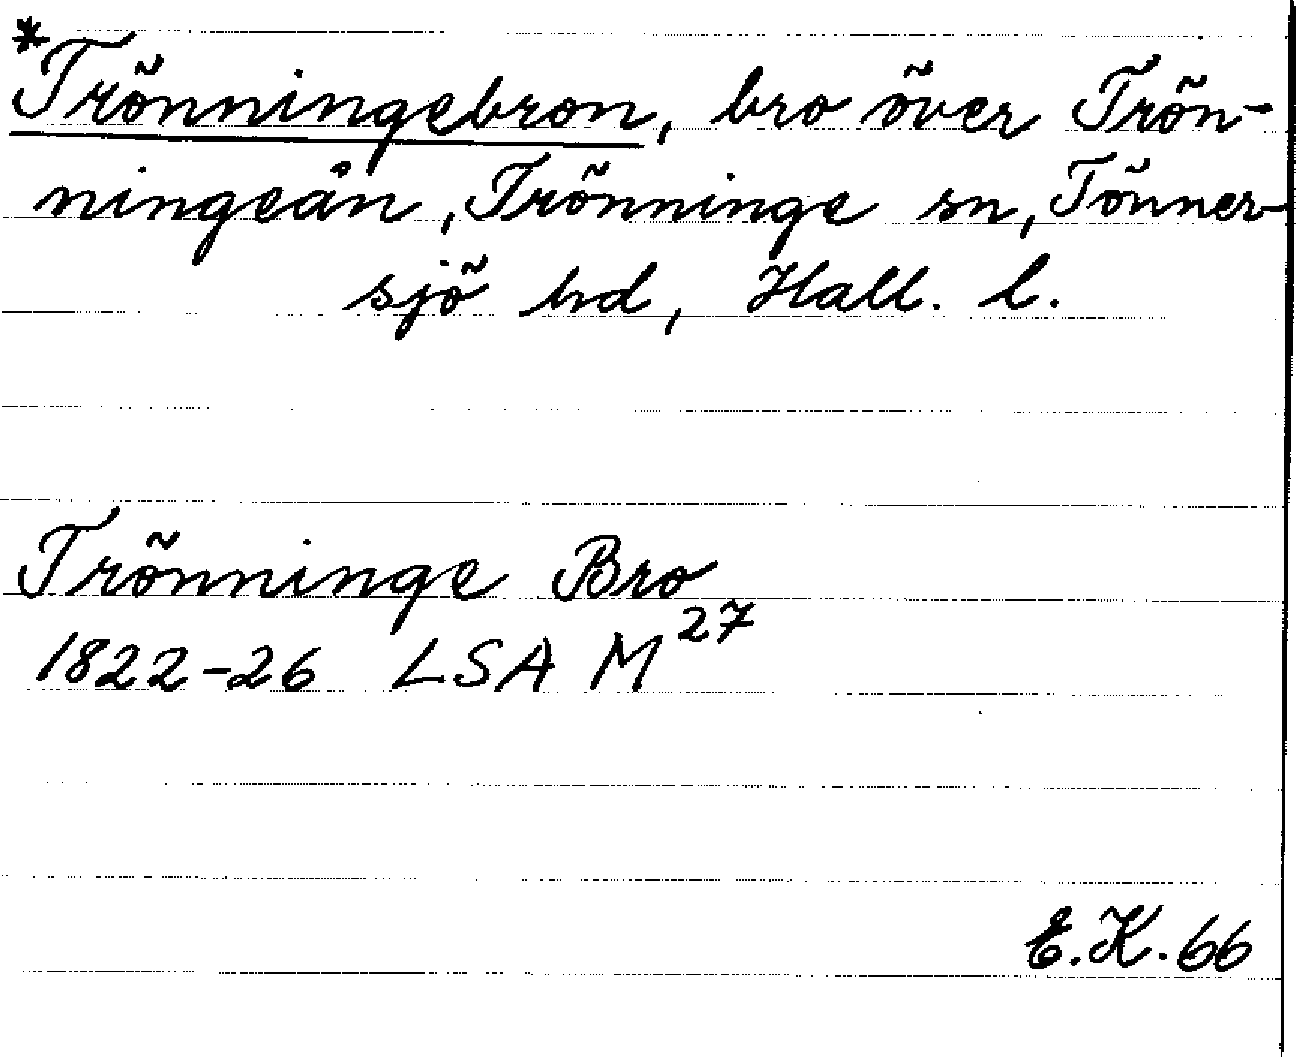 *Trönningebron, bro över Trön-
ningeån, Trönninge sn, Tönner-
sjö hd, Hall. l.
Trönninge Bro
1822-26 LSA M²⁷
E.K. 66